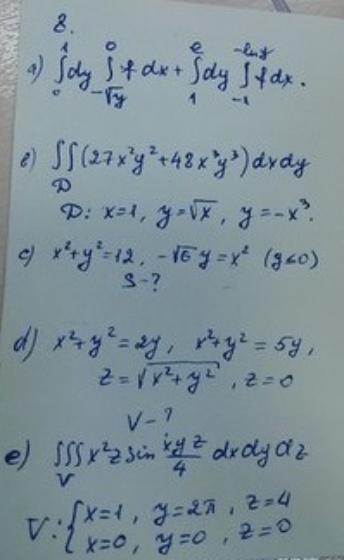 8.
a) ∫₀¹ dy ∫_{-√y}^0 f dx + ∫₁^e dy ∫_{-1}^{-ln y} f dx.
b) ∬_D (27x²y² + 48x³y³) dx dy
D: x=1, y=√x, y=-x³.
c) x²+y²=12, -√6 y = x² (y≤0)
S-?
d) x²+y²=2y, x²+y²=5y,
z=√(x²+y²), z=0
V-?
e) ∭_V x²z sin (xyz/4) dx dy dz
V: { x=1, y=2π, z=4
x=0, y=0, z=0